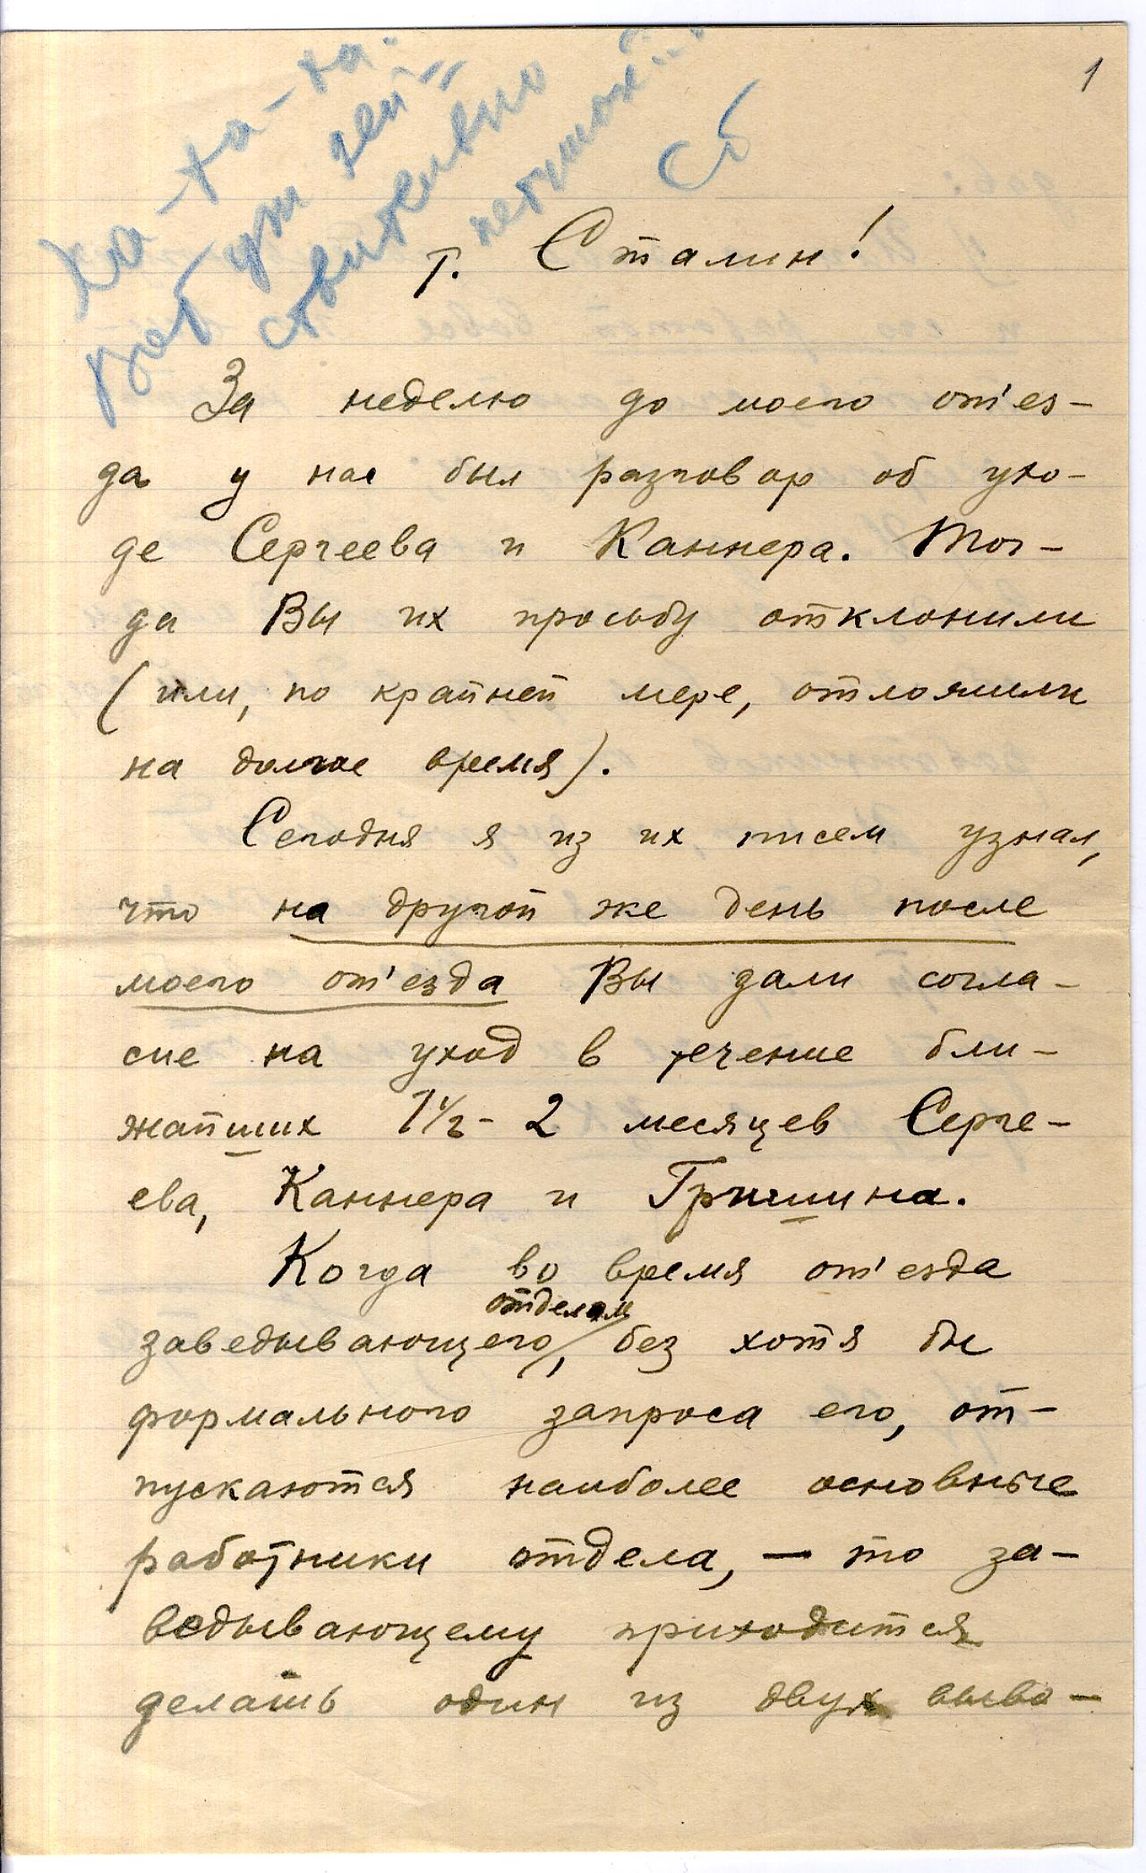 1
Ха-ха-ха.
Вот уж дей=
ствительно
петушок!..
Ст
т. Сталин!
За неделю до моего от'ез-
да у нас был разговор об ухо-
де Сергеева и Каннера. Тог-
да Вы их просьбу отклонили
(или, по крайней мере, отложили
на долгое время).
Сегодня я из их писем узнал,
что на другой же день после
моего от'езда Вы дали согла-
сие на уход в течение бли-
жайших 1½-2 месяцев Серге-
ева, Каннера и Гришина.
Когда во время от'езда
заведывающего отделом, без хотя бы
формального запроса его, от-
пускаются наиболее основные
работники отдела, — то за-
ведывающему приходится
делать один из двух выво-